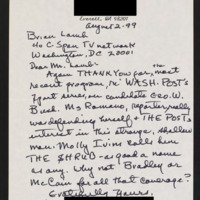 Everett, WA 98201
August 2-99
Brian Lamb
c/o C-Span TV network
Washington, DC 20001
Dear Mr. Lamb:
Again THANK YOU for, most
recent program, re WASH. POST'S
series, on candidate Geo. W.
Bush. Ms Romano, reporter, really
was defending herself & THE POST'S
interest in this strange, shallow
man. Molly Ivins calls him
THE SHRUB - as good a name
as any. Why not Bradley or
McCain for all that coverage?
Gratefully Yours,